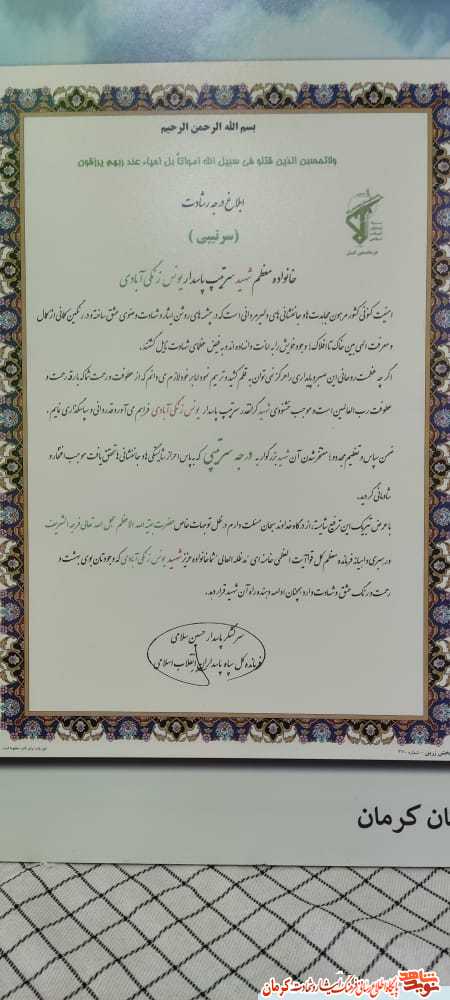 بسم الله الرحمن الرحیم
ولاتحسبن الذین قتلو فی سبیل الله امواتاً بل احیاء عند ربهم یرزقون
ابلاغ درجه رشادت
(سرتیپی)
خانواده معظم شهید سرتیپ پاسدار یونس زنگی‌آبادی
امنیت کنونی کشور مرهون مجاهدت‌ها و جانفشانی‌های دلیرمردانی است که در چشمه‌های روشن ایثار و شهادت وضوی عشق ساخته و در رنگین کمانی از کمال
و معرفت الهی بین خاک تا افلاک، وجود خویش را به امانت داده‌اند و به فیض عظمای شهادت نایل گشتند.
اگر چه عظمت روحانی این صبر و پایداری را هرگز نمی‌توان به قلم کشید و ترسیم نمود اما بر خود لازم می‌دانم که از عطوفت و زحمت شما که بارقه رحمت و
عطوفت رب العالمین است و موجب خشنودی شهید گرانقدر سرتیپ پاسدار یونس زنگی‌آبادی فراهم می‌آورد قدردانی و سپاسگذاری نمایم.
ضمن سپاس و تعظیم مجدد، مفتخر شدن آن شهید بزرگوار به درجه سرتیپی که به پاس احراز شایستگی‌ها و جانفشانی‌ها تحقق یافت موجب افتخار و
شادمانی گردید.
با عرض تبریک این ترفیع شایسته، از درگاه خداوند سبحان مسئلت دارم در ظل توجهات خاص حضرت بقیه الله الاعظم عجل الله تعالی فرجه الشریف
و رهبری داهیانه فرمانده معظم کل قوا آیت الله العظمی خامنه‌ای مدظله العالی شما خانواده عزیز شهید یونس زنگی‌آبادی که وجودتان بوی بهشت و
رحمت و رنگ عشق و شهادت دارد همچنان ادامه دهنده راه آن شهید قرار دهد.
سرلشکر پاسدار حسین سلامی
فرمانده کل سپاه پاسداران انقلاب اسلامی
ان کرمان
نوید شاهد
پایگاه اطلاع رسانی فرهنگ ایثار و شهادت کرمان